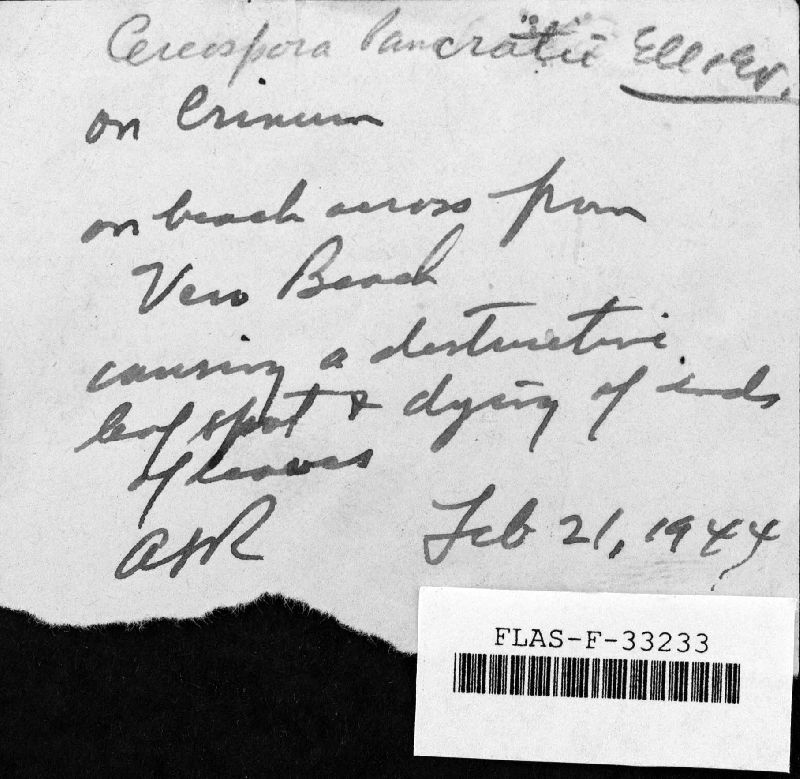 Cercospora Pancratii Ell & Ev.
on Crinum
on beach across from
Vero Beach
causing a destructive
leaf spot & dying of ends
of leaves
ASR Feb 21, 1944
FLAS-F-33233